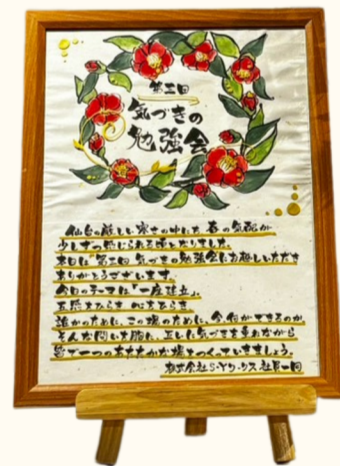 第三回
気づきの
勉強会
仙台の厳しい寒さの中にも、春の気配が
少しずつ感じられる頃となりました。
本日は"第三回 気づきの勉強会にお越しいただき
ありがとうございます。
今日のテーマは「一座建立」。
五感をひらき、心をひらき
誰かのために、この場のために、今何ができるのか。
そんな問いを胸に、互いに気づきを重ねながら
皆で一つのあたたかな場をつくっていきましょう。
社員一同